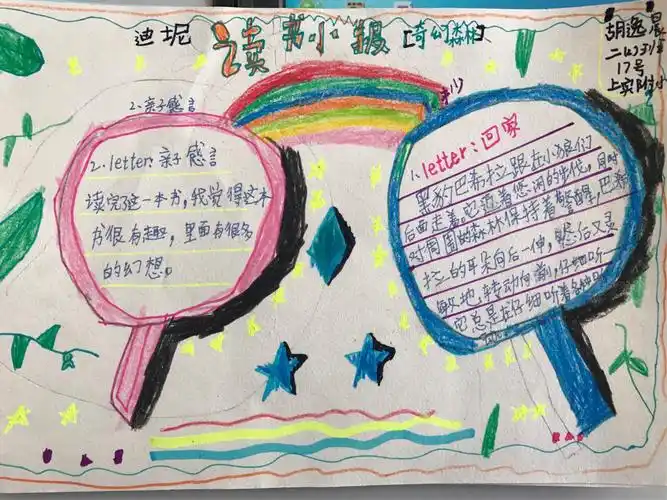 迪坭 读书小报 [奇幻森林]
胡逸晨
二(4)班
17号
上实附小
2.亲子感言
2.letter: 亲子感言
读完了这一本书,我觉得这本
书很有趣,里面有很多
的幻想。
1.letter:回家
黑豹巴希拉跟在小狼们
后面走着,它迈着悠闲的步伐,同时
对周围的森林保持着警醒,巴希
拉的耳朵向后一伸,然后又灵
敏地转动向前,仔细听
它总是在仔细听着各种